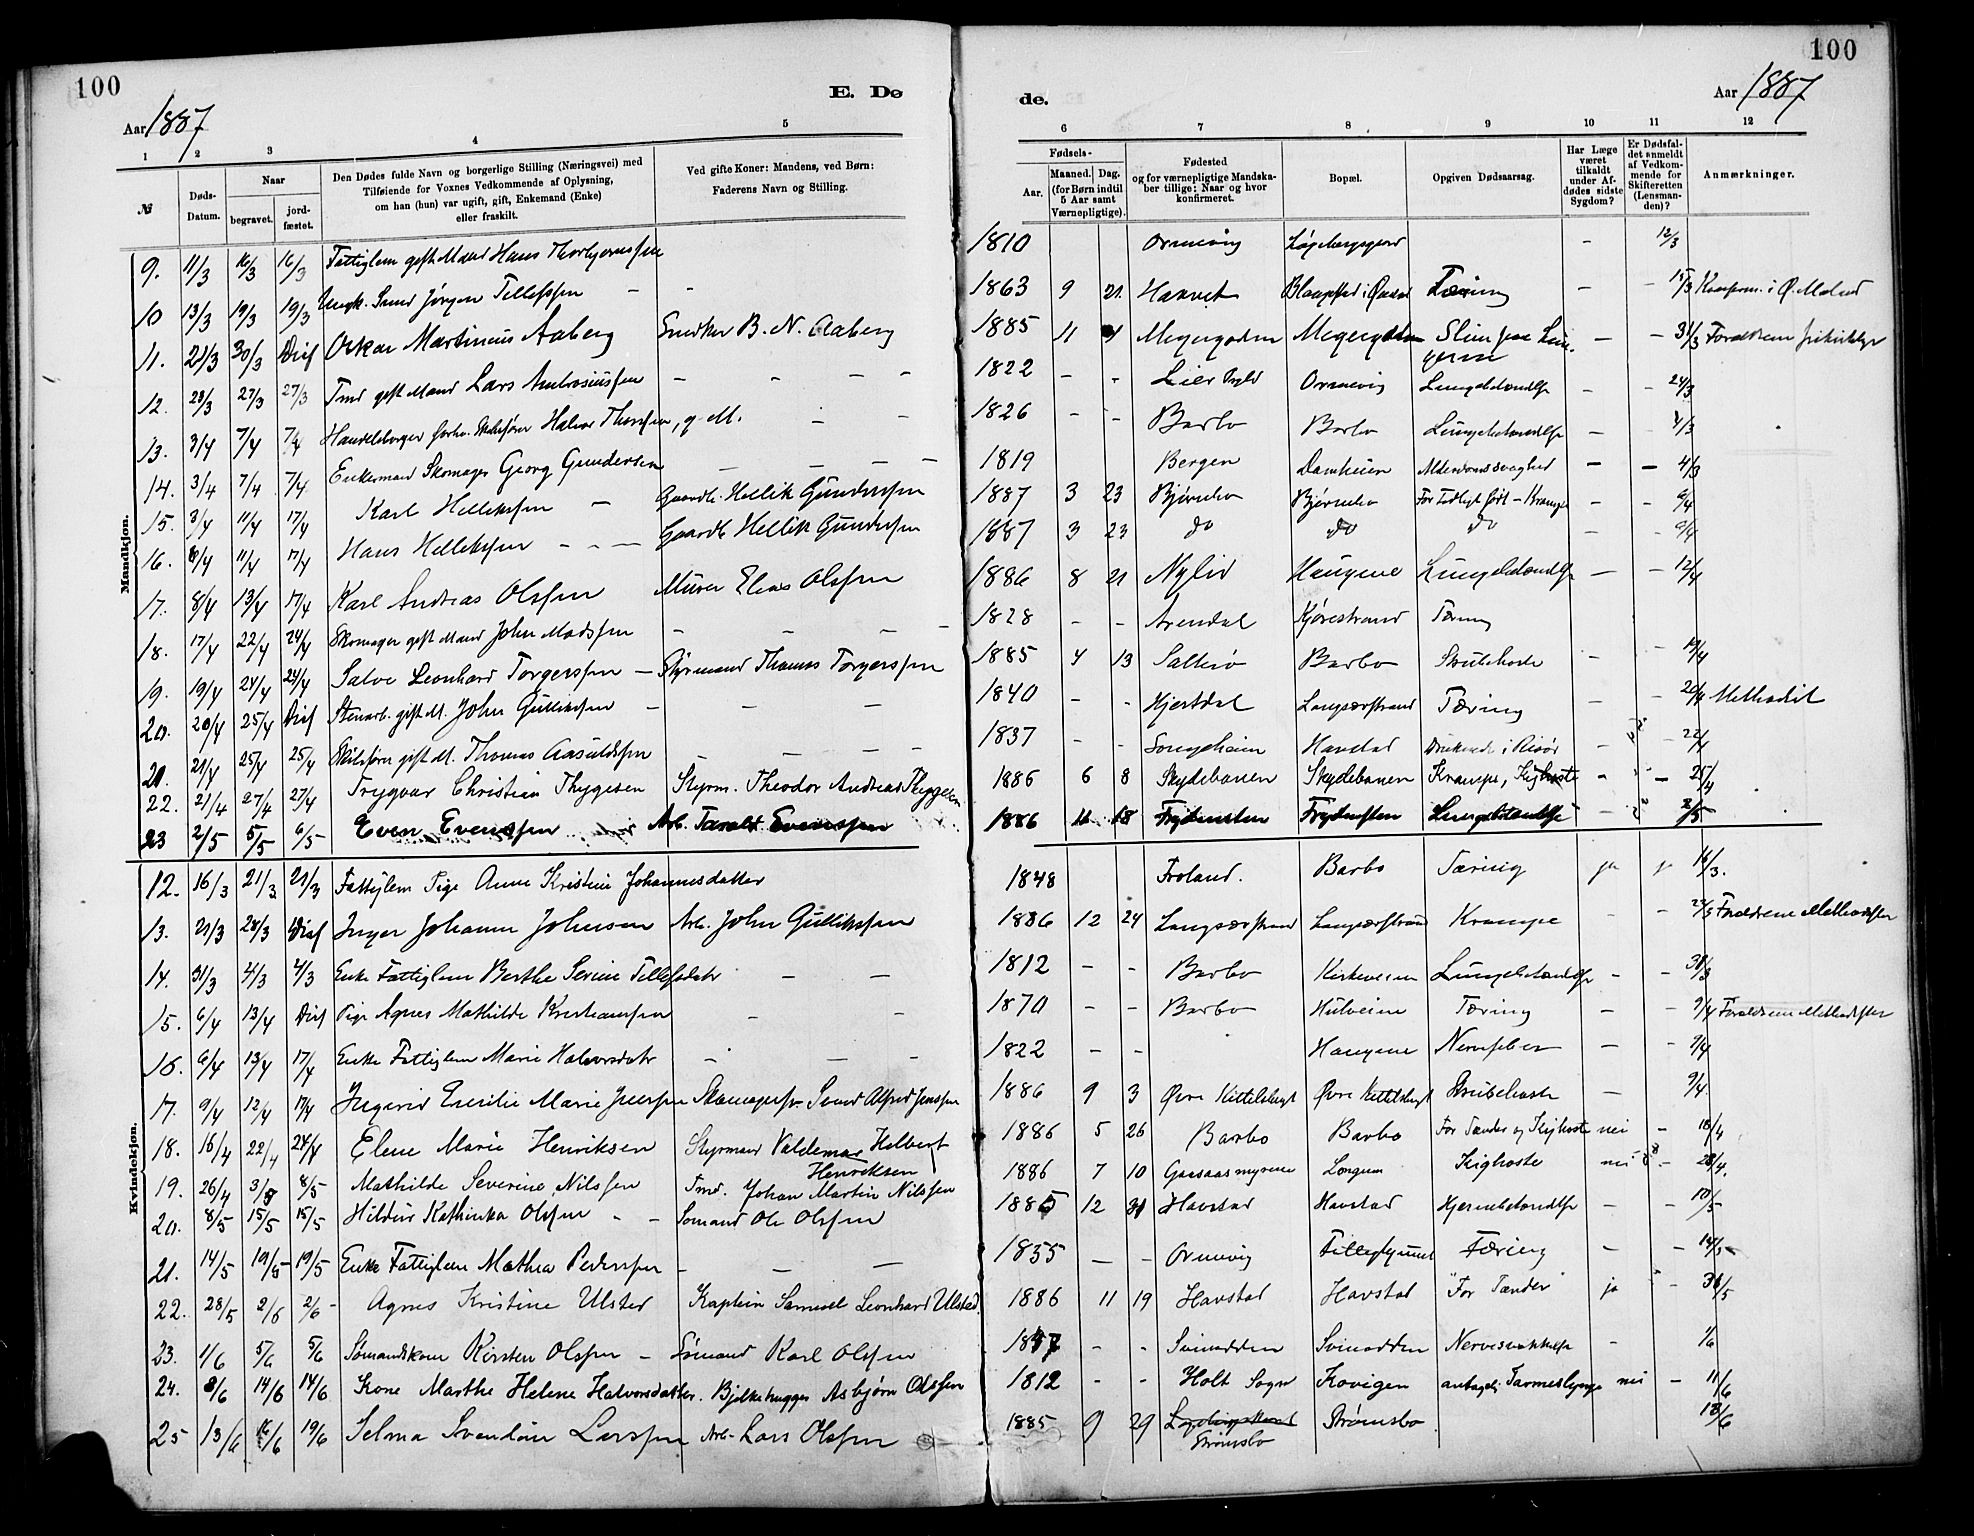 100
Aar 1887
E. Dø
1 2 3 4 5
№
Døds-Datum.
Naar
begravet.
jord-fæstet.
Den Dødes fulde Navn og borgerlige Stilling (Næringsvei) med
Tilføiende for Voxnes Vedkommende af Oplysning,
om han (hun) var ugift, gift, Enkemand (Enke)
eller fraskilt.
Ved gifte Koner: Mandens, ved Børn:
Faderens Navn og Stilling.
Mandkjøn.
9. 11/3 16/3 16/3 Fattiglem gift Mand Hans Thorbjørnssen -
10 13/3 19/3 19/3 Ungk. Smed Jørgen Tellefssen - -
11. 21/3 30/3 Diss Oskar Martinius Aaberg Snedker B. N. Aaberg
12. 23/3 27/3 27/3 Tmd gift Mand Lars Ambrosiussen - - - -
13. 3/4 7/4 7/4 Handelsborger forhv. Skibsfører Halvor Thorssen, g M. - -
14. 3/4 7/4 7/4 Enkemand Skomager Georg Gundersen - - - -
15. 3/4 11/4 17/4 Karl Hellikssen - Gaardb. Hellik Gunderssen
16. 6/4 11/4 17/4 Hans Hellikssen - - - Gaardb Hellik Gunderssen
17. 8/4 13/4 17/4 Karl Andreas Olssen Murer Elias Olssen
18. 17/4 22/4 24/4 Skomager gift Mand John Madssen - - - -
19. 19/4 24/4 24/4 Salve Leonhard Torgerssen - Styrmand Thomas Torgerssen
20. 20/4 25/4 Diss Stenarb. gift M. John Gullikssen - - -
21. 21/4 25/4 25/4 Skibsfører gift M. Thomas Aasuldssen - - - -
22. 21/4 27/4 27/4 Trygvar Christian Thygesen Styrm. Theodor Andreas Thygesen
23 2/5 5/5 6/5 Even Evenssen Arb. Tarald Evenssen
Kvindekjøn.
12. 16/3 21/3 21/3 Fattiglem Pige Anne Kristine Johannesdatter
13. 21/3 28/3 Diss Inger Johanne Johnsen Arb. John Gullikssen
14. 31/3 4/3 4/3 Enke Fattiglem Berthe Serine Tellefsdatr - -
15. 6/4 13/4 Diss Pige Agnes Mathilde Kristianssen - -
16. 6/4 13/4 17/4 Enke Fattiglem Marie Halvorsdatr - - -
17. 9/4 12/4 17/4 Ingerid Emilie Marie Jenssen Skomagersv. Svend Alfred Jenssen
18. 16/4 22/4 24/4 Elene Marie Henriksen Styrmand Valdemar Helbert
Henriksen
19. 26/4 3/5 8/5 Mathilde Severine Nilssen Tmd. Johan Martin Nilssen
20. 8/5 15/5 15/5 Hildur Kathinka Olssen - - Sømand Ole Olssen
21. 14/5 19/5 19/5 Enke Fattiglem Mathea Pederssen - - -
22. 28/5 2/6 2/6 - Agnes Kristine Ulstad Kaptein Samuel Leonhard Ulstad.
23. 1/6 5/6 5/6 Sømandskone Kirsten Olssen - Sømand Karl Olssen
24. 8/6 14/6 14/6 Kone Marthe Helene Halvorsdatter. Bjelkehugger Asbjørn Olssen
25 13/6 16/6 19/6 Selma Svendine Larssen Arb. Lars Olssen
100
de.
Aar 1887
6 7 8 9 10 11 12
Fødsels-
Aar.
Maaned. Dag.
(for Børn indtil
5 Aar samt
Værnepligtige).
Fødested
og for værnepligtige Mandska-
ber tillige: Naar og hvor
konfirmeret.
Bopæl.
Opgiven Dødsaarsag.
Har Læge
været
tilkaldt
under Af-
dødes sidste
Sygdom?
Er Dødsfal-
det anmeldt
af Vedkom-
mende for
Skifteretten
(Lensman-
den)?
Anmærkninger.
1810 Ormevig Løgebergsgaard - 12/3
1863 9 21. Haavet Tæring - - 15/3 Konferm. i Ø. Moland
1885 11 Meyergaden Meyergaden Slim paa Lun-
gerne - - 31/3 Forældrene frikirkelige
1822 - - Lier Ormevig Lungebetændelse - - 24/3
1826 - - Barbo Barbo Lungebetændelse - - 4/3
1819 Bergen Damheien Alderdomssvaghed - - 4/3
1887 3 23 Bjørnebo Bjørnebo For Tidligt født - Krampe - - 6/4
1887 3 23 do do do - 9/4
1886 8 21 Nylid Haugene Lungebetændelse - - 12/4
1828 - - Arendal Kjørestrand Tæring
1885 4 13 Salterø Barbo Strubehoste - 19/4
1840 - - Hjertdal Langsæstrand Tæring - - 20/4 Methodist
1837 - - Songeheim Havstad Druknede i Risør - - 22/4
1886 6 8 Skydebanen Skydebanen Krampe, Kighoste - - 25/4
1886 11 18 Frydensten Frydensten Lungebetændelse - 2/5
1848 Froland. Barbo Tæring ja j 16/3.
1886 12 24 Langsæstrand Langsæstrand Krampe - - Forældrene Methodister
1812 - - Barbo Kirkeveien Lungebetændelse - - 31/3
1870 - - Barbo Hulveien Tæring - - 9/4 Forældrene Methodister
1822 - - Haugene Nervefeber - - 9/4
1886 9 3 Øvre Kittelsbugt Øvre Kittelsbugt Strubehoste - 9/4
1886 5 26 Barbo Barbo For Tænder og Kighoste nei - 18/4
1886 7 10 Gaasaasmyrene Longum Kighoste nei - 28/4.
1885 12 31 Havstad Havstad Hjernebetændelse - - 10/5
1835 - - Ormevig Tæring - - 14/5
1886 11 19 Havstad Havstad "For Tænder" ja - 31/5
1857 - - Svinodden Svinodden Nervesvækkelse - 1/6
1812 - - Holt Sogn Kovigen antagelig Tarmeslyng nei - 11/6
1885 9 29 Strømsbo Strømsbo 18/6